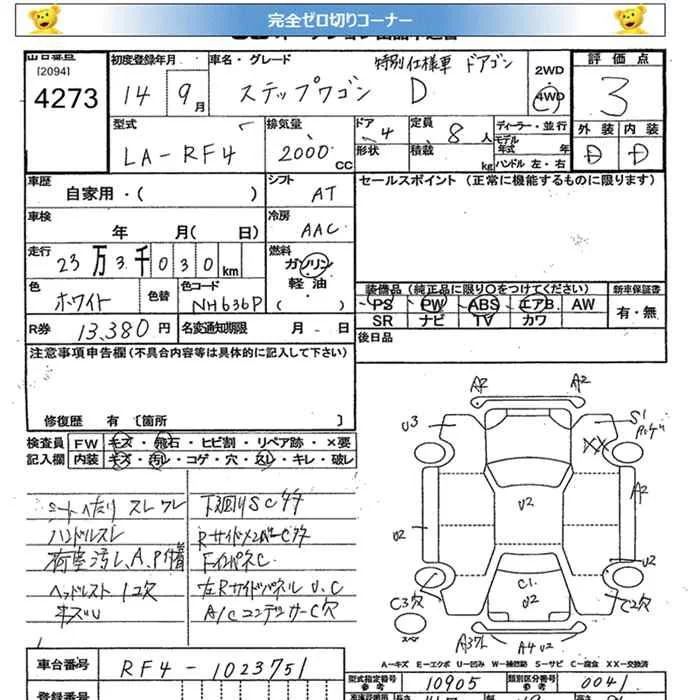 完全ゼロ切りコーナー
出品番号
[2094]
4273
初度登録年月
14 9月
車名・グレード
特別仕様車 ドアゴン
ステップワゴン D
2WD
4WD
評価点
3
型式
LA-RF4
排気量
2000 CC
ドア 4
形状
定員 8人
積載 kg
ディーラー・並行
モデル年式 年
ハンドル 左・右
外装 内装
D D
車歴
自家用・( )
シフト
AT
セールスポイント (正常に機能するものに限ります)
車検
年 月( 日)
冷房
AAC
走行
23万3千030km
燃料
ガソリン
軽油
( )
色
ホワイト
色替
色コード
NH636P
装備品(純正品に限り○をつけてください)
PS PW ABS エアB. AW
SR ナビ TV カワ
新車保証書
有・無
R券
13,380円
名変通知期限
月 - 日
後日品
注意事項申告欄(不具合内容等は具体的に記入して下さい)
修復歴 有 〔箇所 〕
検査員記入欄
FW キズ・飛石・ヒビ割・リペア跡・×要
内装 キズ・汚レ・コゲ・穴・スレ・キレ・破レ
シートへたり スレ ワレ
下廻りSCサタ
ハンドルスレ
RサイドメンバーCサタ
荷室汚レ、A、P付着
FインパネC
ヘッドレスト1コ欠
左RサイドパネルU、C
キズU
A/CコンデンサーC穴
A2 A2
U3
S1
XX
U2
A2
U2
U2
C1
U2
C3欠
C2欠
A3 A4 U2
A－キズ E－エクボ U－凹み W－補修跡 S－サビ C－腐食 XX－交換済
車台番号
RF4-1023751
型式指定番号
参考
10905
類別区分番号
参考
0041
登録番号